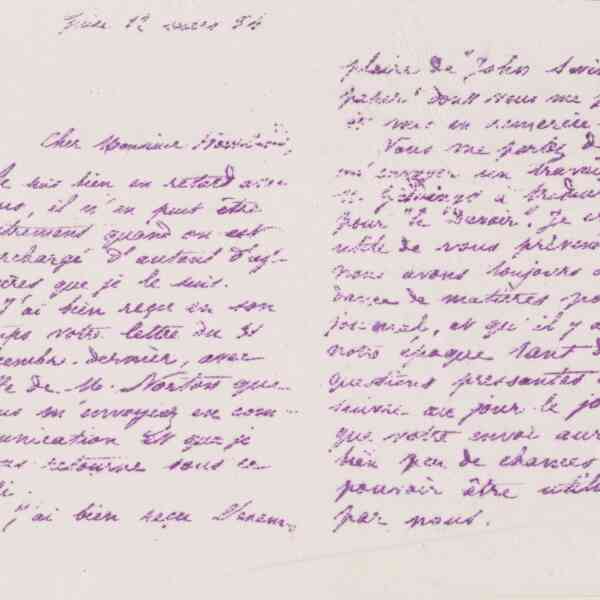 12 mars 84
Cher Monsieur
Je suis bien en retard avec
vous, il n'en peut être
autrement quand on est
surchargé d'autant d'af-
faires que je le suis.
J'ai bien reçu en son
temps votre lettre du 31
décembre dernier, avec
de M. Norton que
vous m'envoyiez en com-
munication et que je
vous retourne sous ce
pli.
J'ai bien reçu l'exem-
plaire de "John Swin
paper" dont vous me
et vous en remercie.
Vous me parlez d
m'envoyer un travail
à traduire
pour "le Devoir". Je
utile de vous préven
nous avons toujours
dance de matières po
journal, et qu'il y a
notre époque tant d
questions pressantes
suivre au jour le jo
que votre envoi aur
bien peu de chances
pouvoir être utili
par nous.